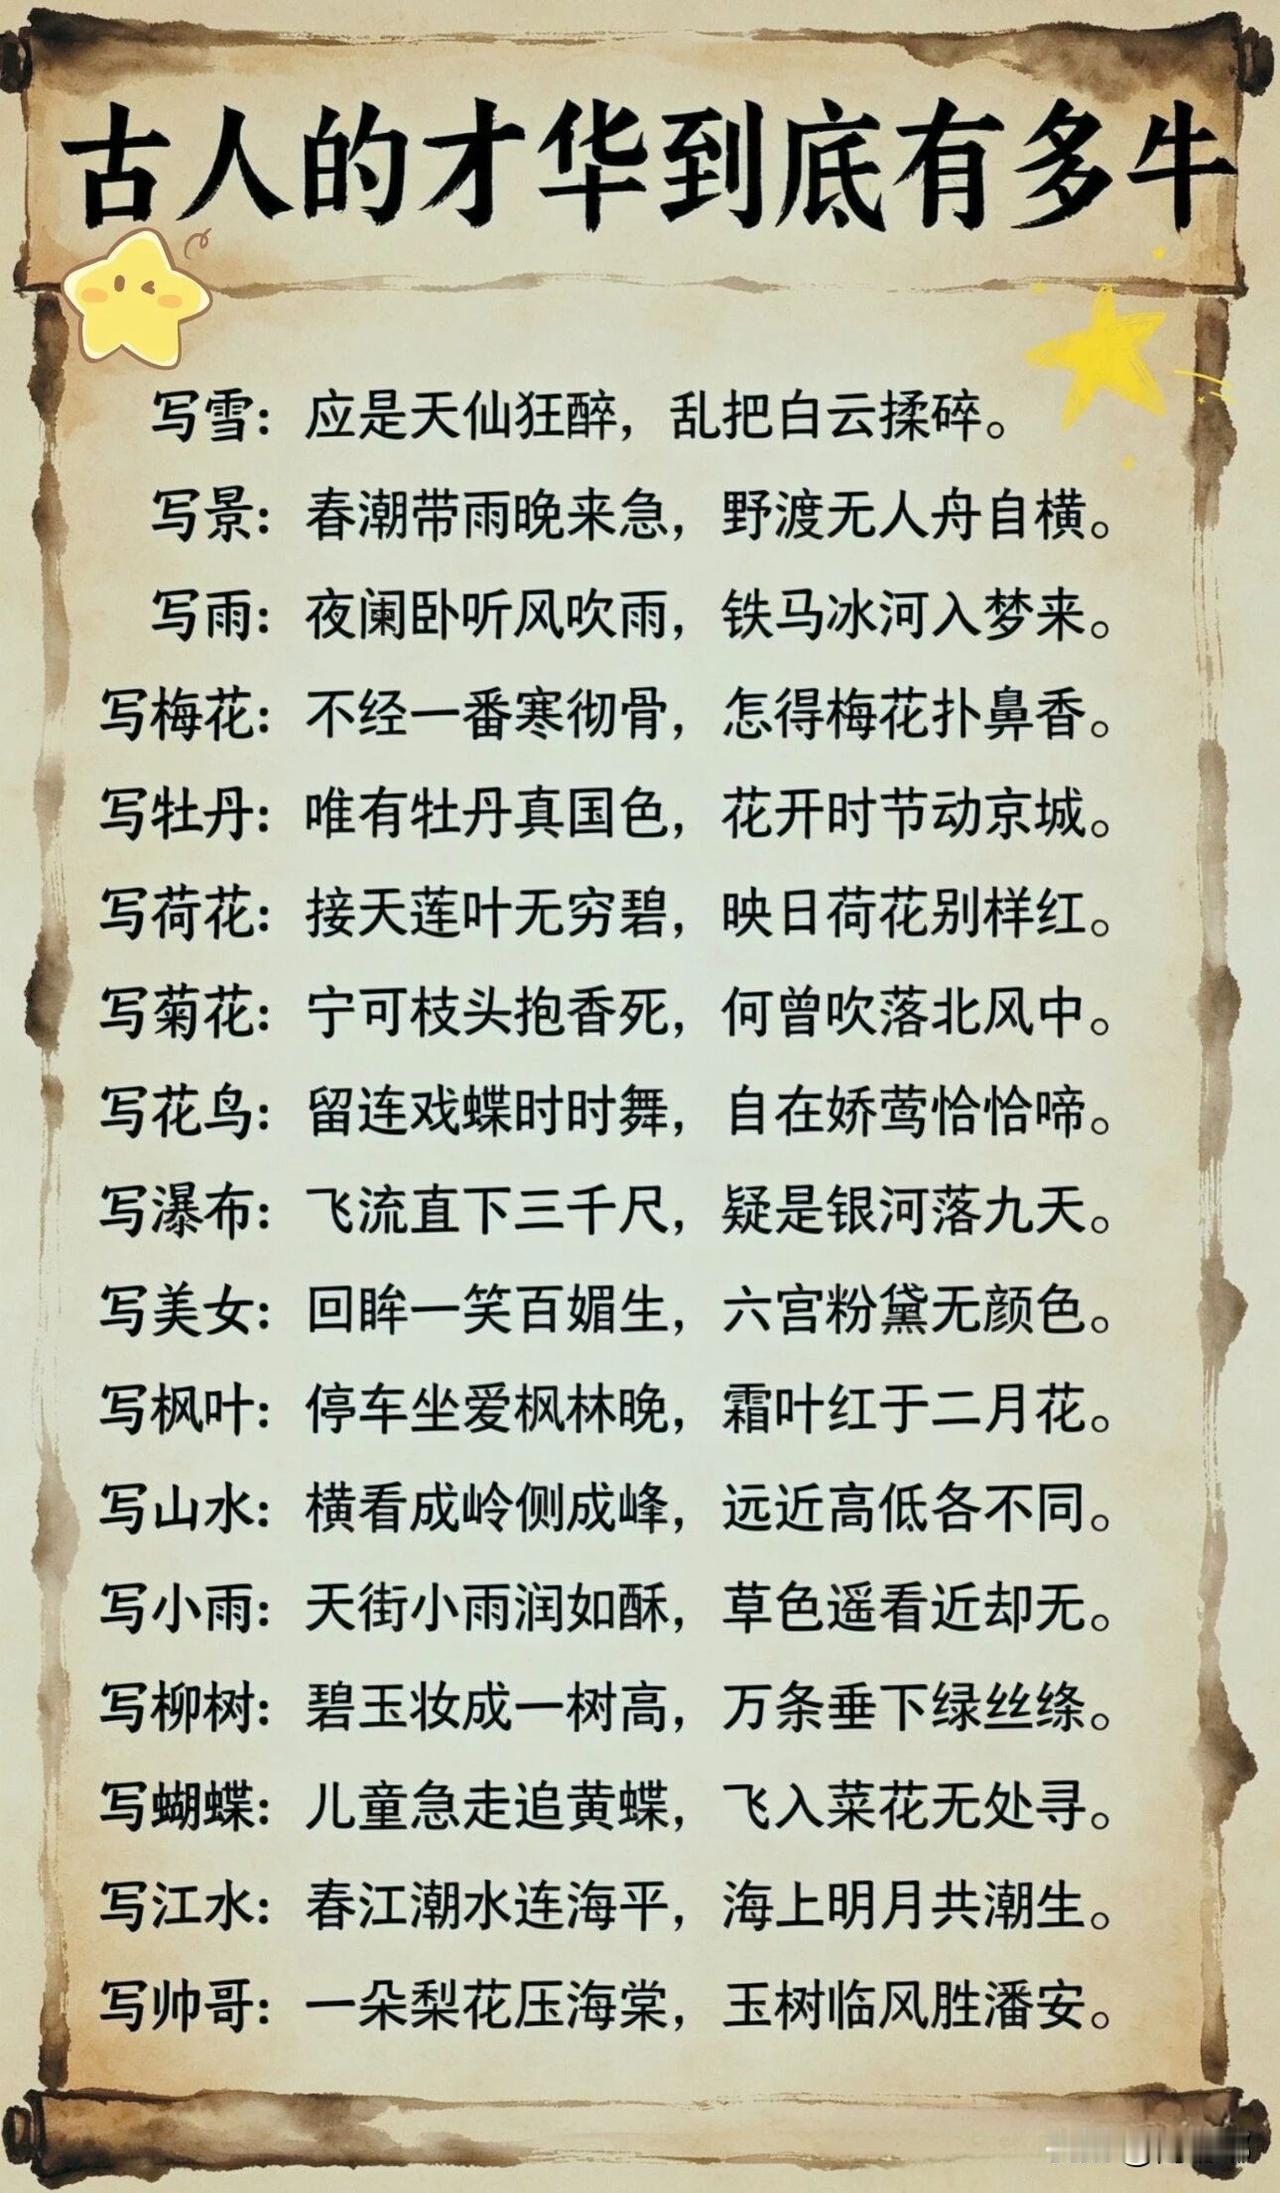 古人的才华到底有多牛
写雪：应是天仙狂醉，乱把白云揉碎。
写景：春潮带雨晚来急，野渡无人舟自横。
写雨：夜阑卧听风吹雨，铁马冰河入梦来。
写梅花：不经一番寒彻骨，怎得梅花扑鼻香。
写牡丹：唯有牡丹真国色，花开时节动京城。
写荷花：接天莲叶无穷碧，映日荷花别样红。
写菊花：宁可枝头抱香死，何曾吹落北风中。
写花鸟：留连戏蝶时时舞，自在娇莺恰恰啼。
写瀑布：飞流直下三千尺，疑是银河落九天。
写美女：回眸一笑百媚生，六宫粉黛无颜色。
写枫叶：停车坐爱枫林晚，霜叶红于二月花。
写山水：横看成岭侧成峰，远近高低各不同。
写小雨：天街小雨润如酥，草色遥看近却无。
写柳树：碧玉妆成一树高，万条垂下绿丝绦。
写蝴蝶：儿童急走追黄蝶，飞入菜花无处寻。
写江水：春江潮水连海平，海上明月共潮生。
写帅哥：一朵梨花压海棠，玉树临风胜潘安。